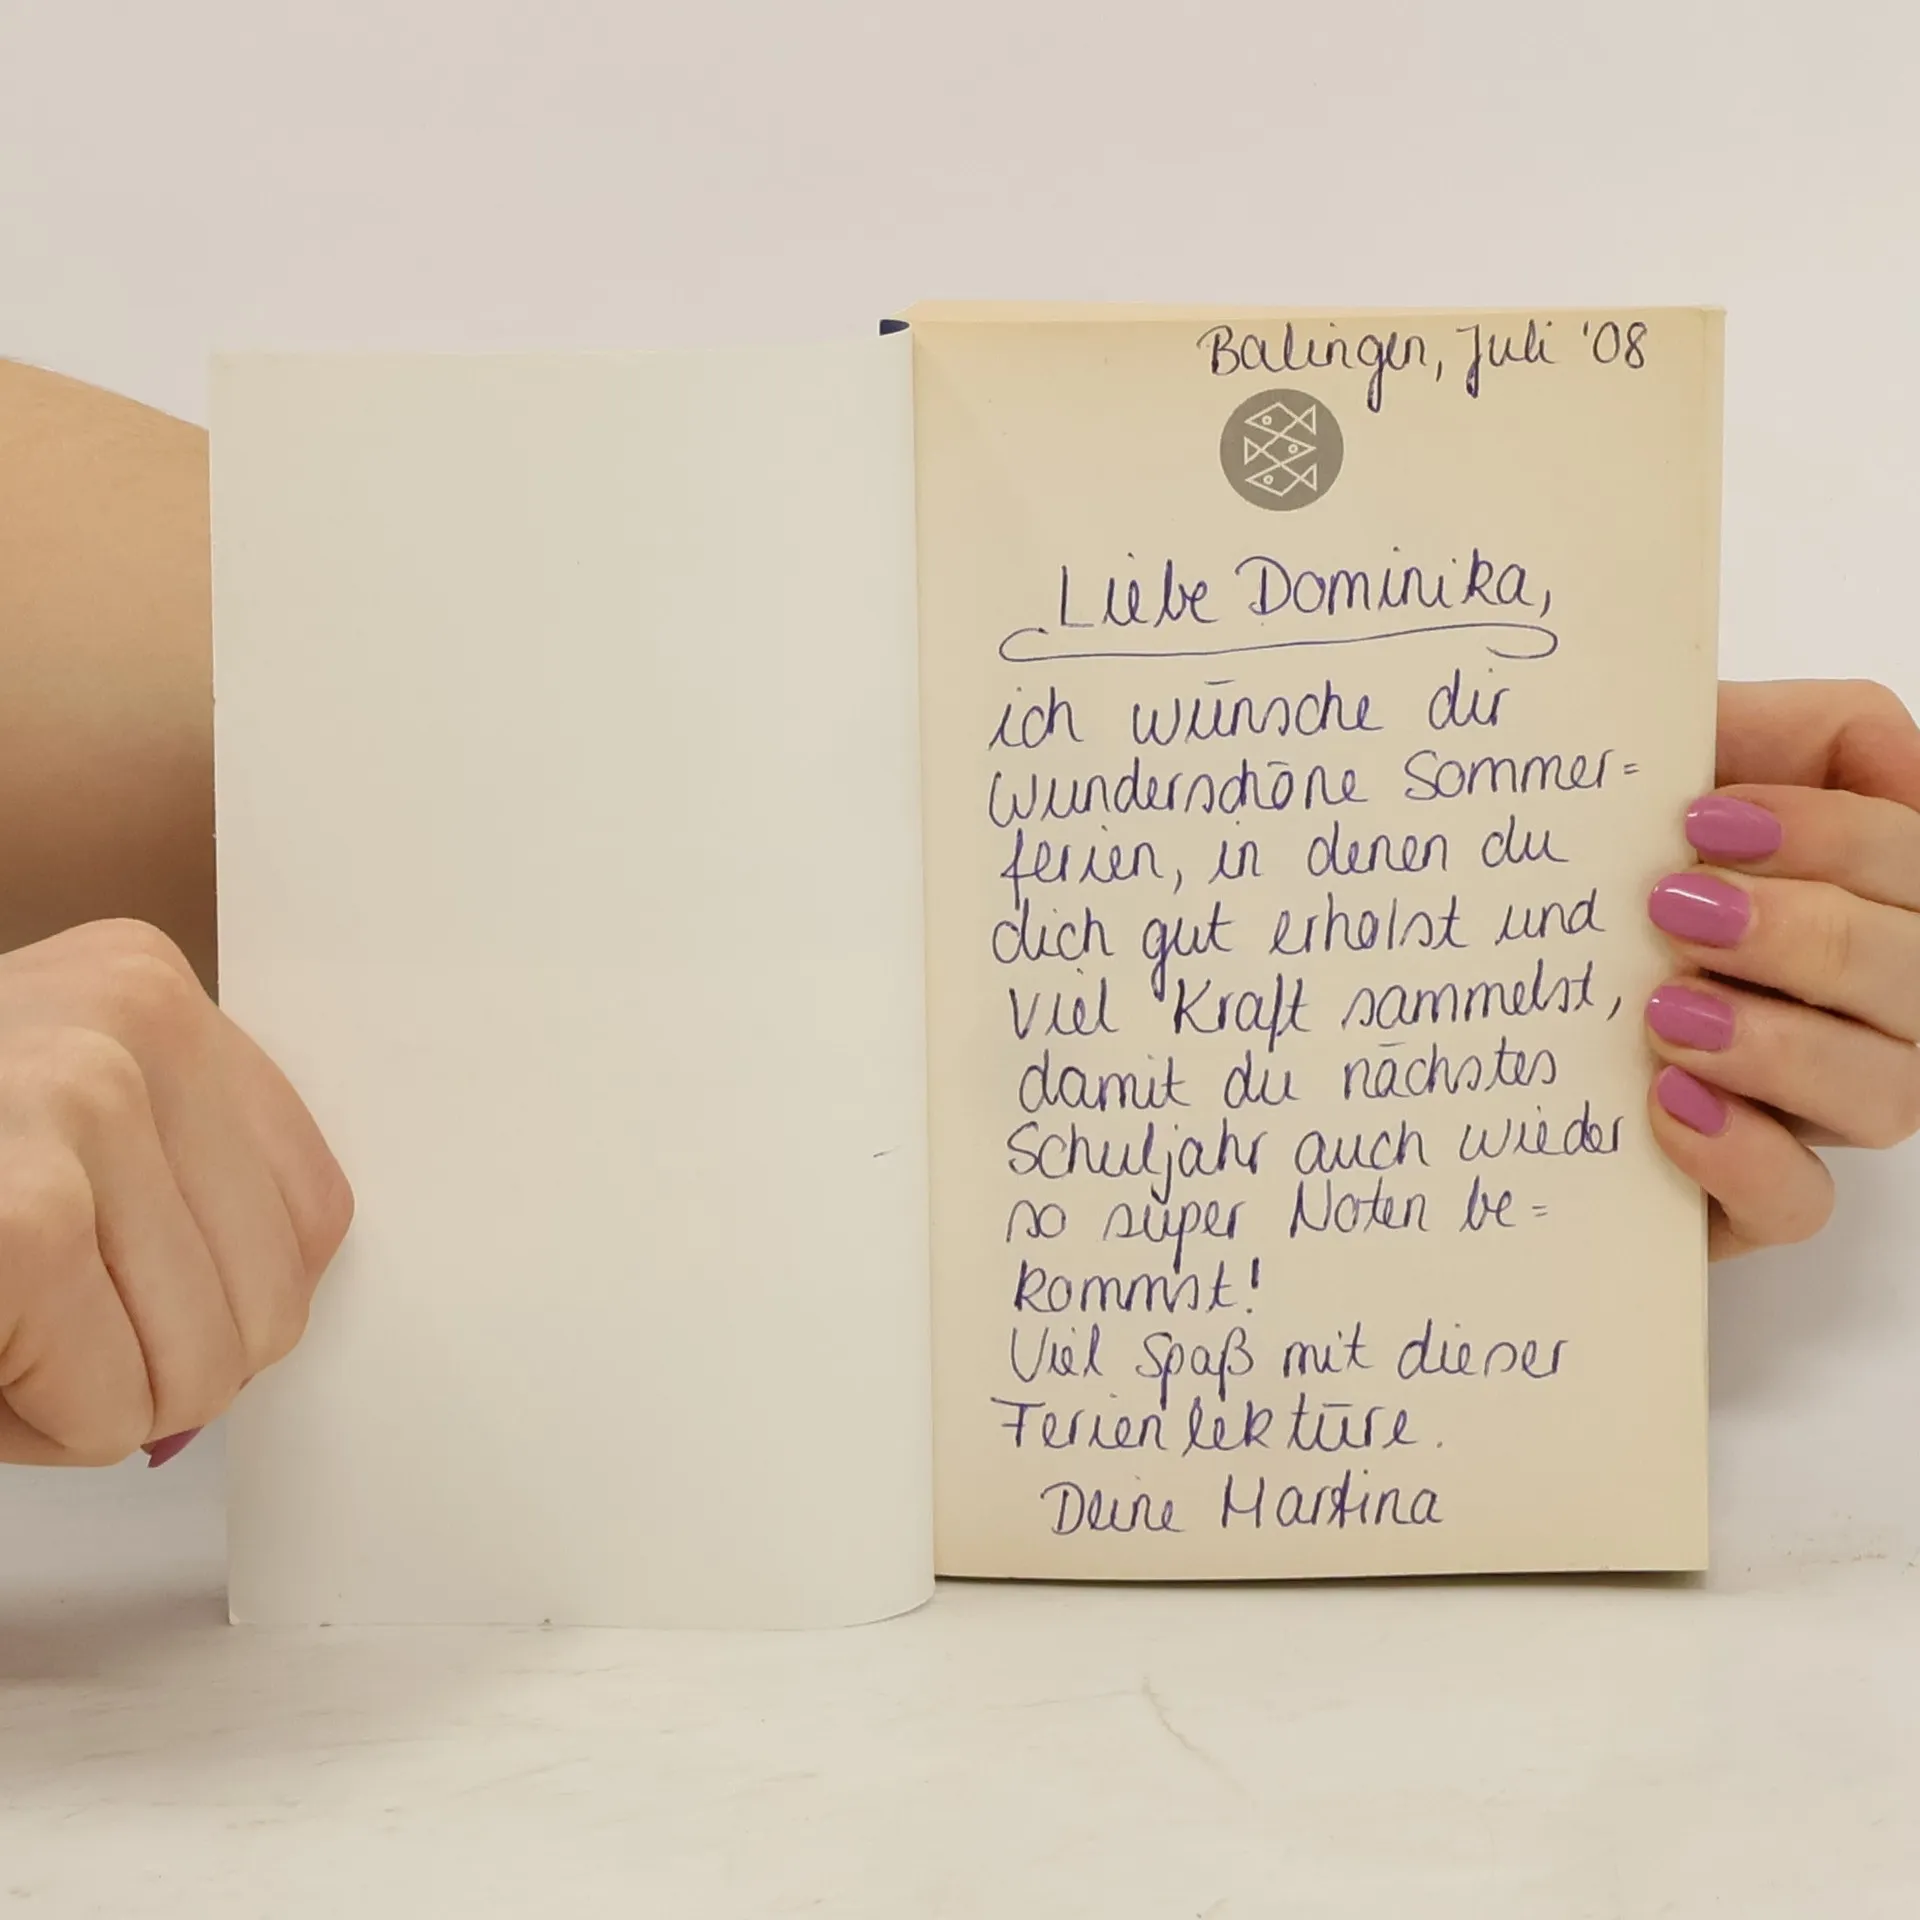 Balingen, Juli '08
Liebe Dominika,
ich wünsche dir
wunderschöne Sommer=
ferien, in denen du
dich gut erholst und
viel Kraft sammelst,
damit du nächstes
Schuljahr auch wieder
so super Noten be=
kommst!
Viel Spaß mit dieser
Ferienlektüre.
Deine Martina